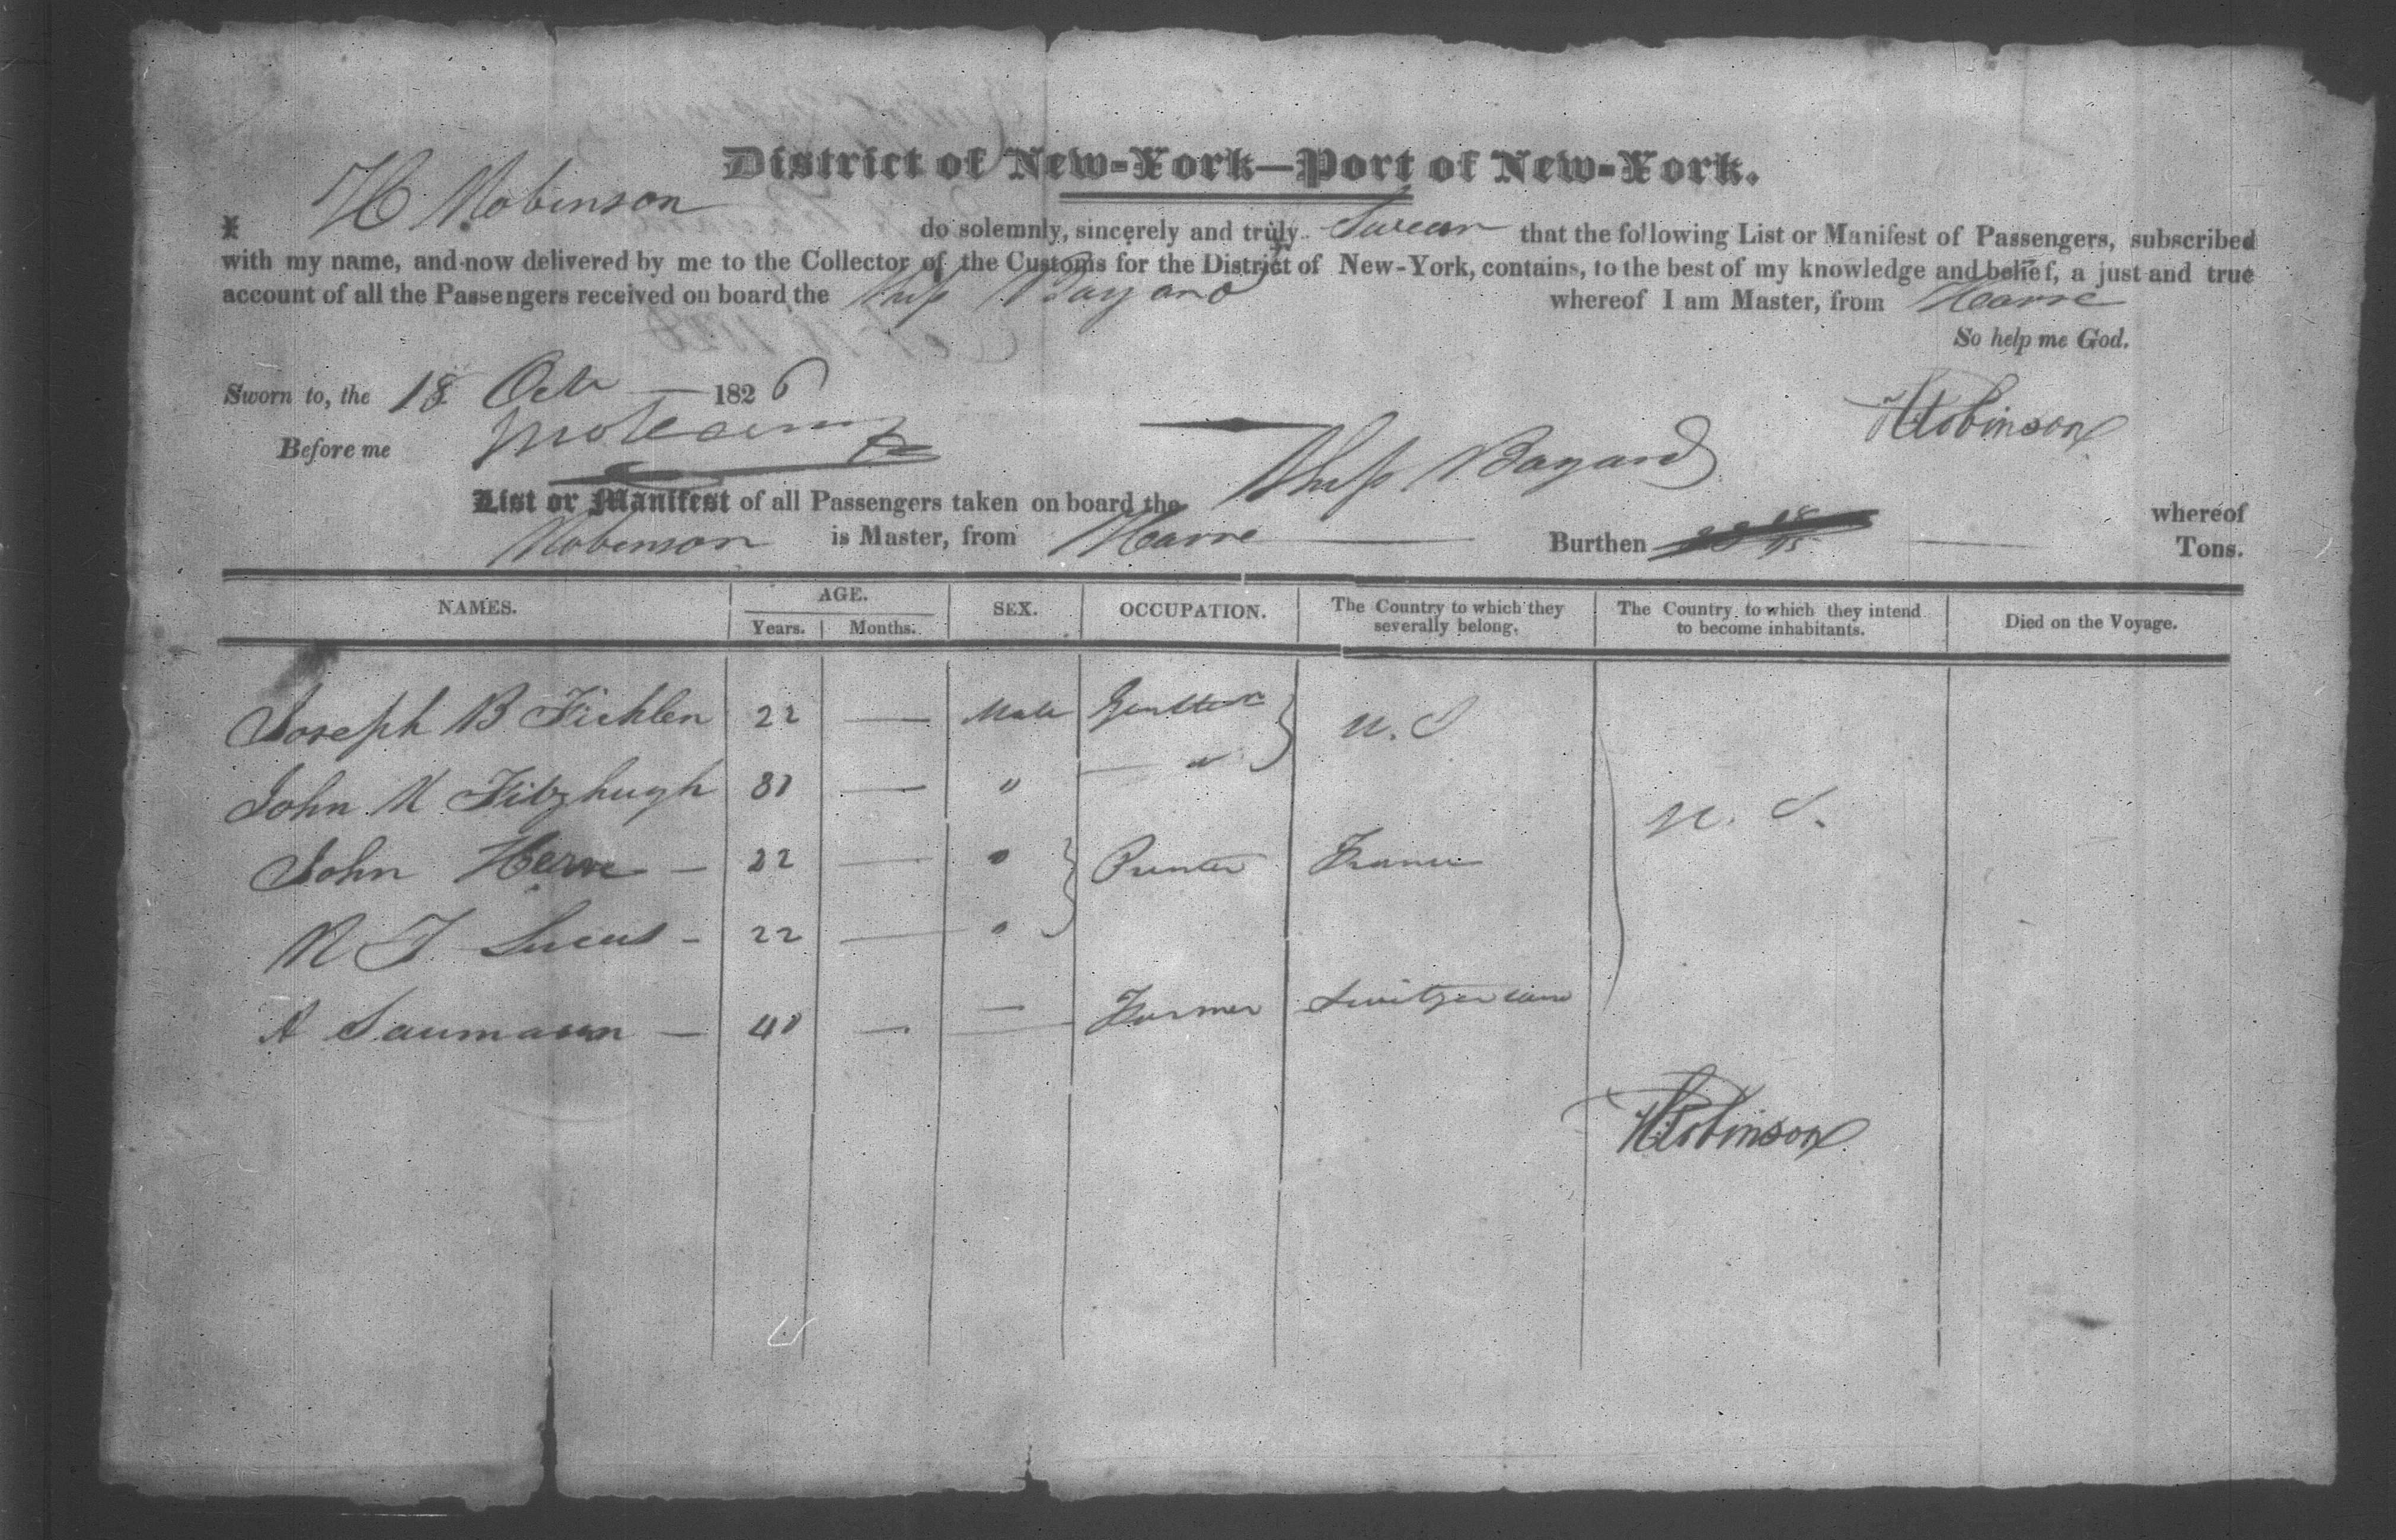 District of New-York—Port of New-York.
I H Robinson do solemnly, sincerely and truly Swear that the following List or Manifest of Passengers, subscribed
with my name, and now delivered by me to the Collector of the Customs for the District of New-York, contains, to the best of my knowledge and belief, a just and true
account of all the Passengers received on board the Ship Bayard whereof I am Master, from Havre
So help me God.
Sworn to, the 18 Octr 1826
H Robinson
Before me
List or Manifest of all Passengers taken on board the Ship Bayard whereof
Robinson is Master, from Havre Burthen Tons.
NAMES. AGE. SEX. OCCUPATION. The Country to which they severally belong. The Country to which they intend to become inhabitants. Died on the Voyage.
Years. Months.
Joseph B Ficklen 22 — Male U. S
John Fitzhugh — " "
John Herve — 22 — " Printer France U. S.
R F Lucas - 22 — "
A Saumann — 40 — — Farmer Switzerland
H Robinson